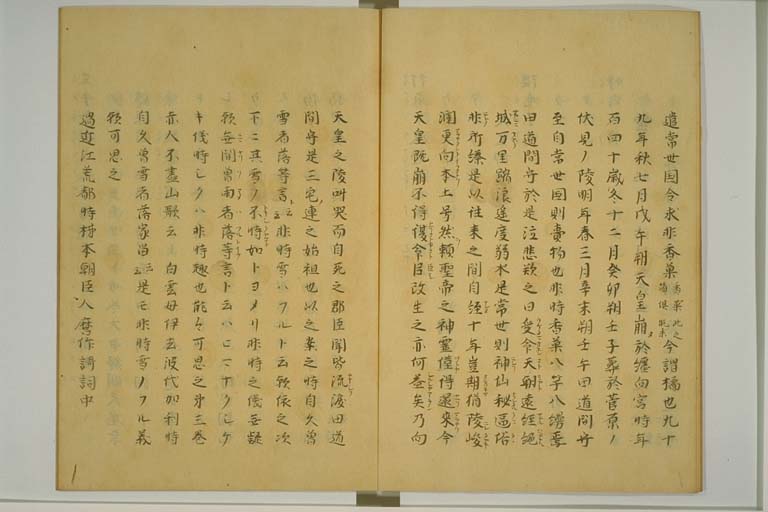 遣常世国令求非時香菓香菓此云箇倶能未今謂橘也九十
九年秋七月戊午朔天皇崩於纏向宮時年
百四十歳冬十二月癸卯朔壬子葬於菅原ノ
伏見ノ陵明年春三月辛未朔壬午田道間守
至自常世国則賚物也非時香菓八竿八縵焉
田道間守於是泣悲歎之曰受命天朝遠往絶
域万里蹈浪遥度弱水是常世国則神仙秘区俗
非所臻是以往来之間自経十年豈期独陵峻
瀾更向本土乎然頼聖帝之神霊僅得還来今
天皇既崩不得復命臣雖生之亦何益矣乃向
天皇之陵叫哭而自死之郡臣聞皆流涙田道
間守是三宅連之始祖也以之案之時自久曽
雪者落等言ト云非時雪ハフルト云歌依之次
ノ不二其雪ノ不時如トヨメリ非時之儀無疑
歌無間曽雨者落等言ト云ハヒマナクシテ
トキ儀時シクハ非時趣也能々可思之第三巻
赤人不尽山歌云 白雲母伊去波代加利時
自久曽雪者落家留云云是モ非時雪ノフル義
歟可思之
過近江荒都時柿本朝臣人麿作謌詞中